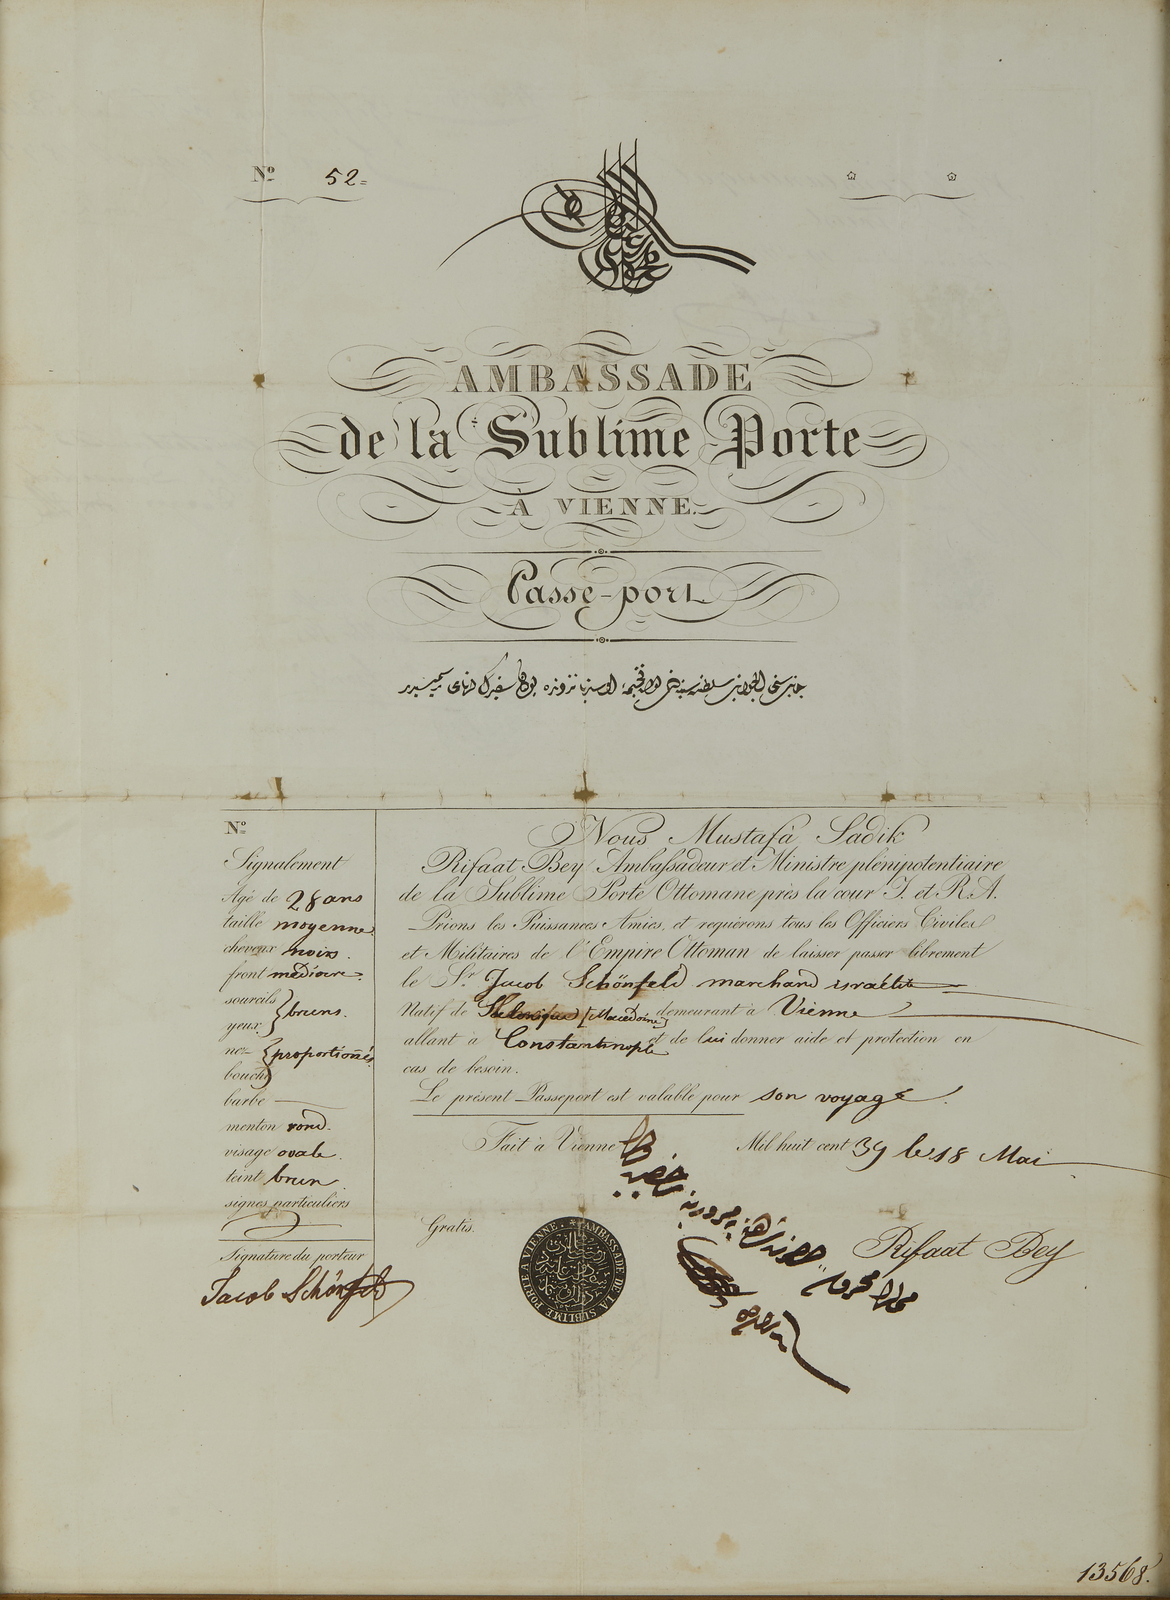 Nº 52
AMBASSADE
de la Sublime Porte
À VIENNE.
Passe-port
Nº
Signalement
Agé de 28 ans
taille moyenne
cheveux noirs.
front médiocre
sourcils
yeux } bruns.
nez } proportionnés
bouche
barbe —
menton rond.
visage ovale.
teint brun
signes particuliers
Signature du porteur
Jacob Schönfeld
Nous Mustafà Sadik
Rifaat Bey Ambassadeur et Ministre plénipotentiaire
de la Sublime Porte Ottomane près la cour I. et R. A.
Prions les Puissances Amies, et requérons tous les Officiers Civiles
et Militaires de l'Empire Ottoman de laisser passer librement
le Sr. Jacob Schönfeld marchand israélite
Natif de (Macedoine) demeurant à Vienne
allant à Constantinople et de lui donner aide et protection en
cas de besoin.
Le présent Passeport est valable pour son voyage.
Fait à Vienne Mil huit cent 39 le 18 Mai
Gratis.
AMBASSADE DE LA SUBLIME PORTE A VIENNE
Rifaat Bey
13568.